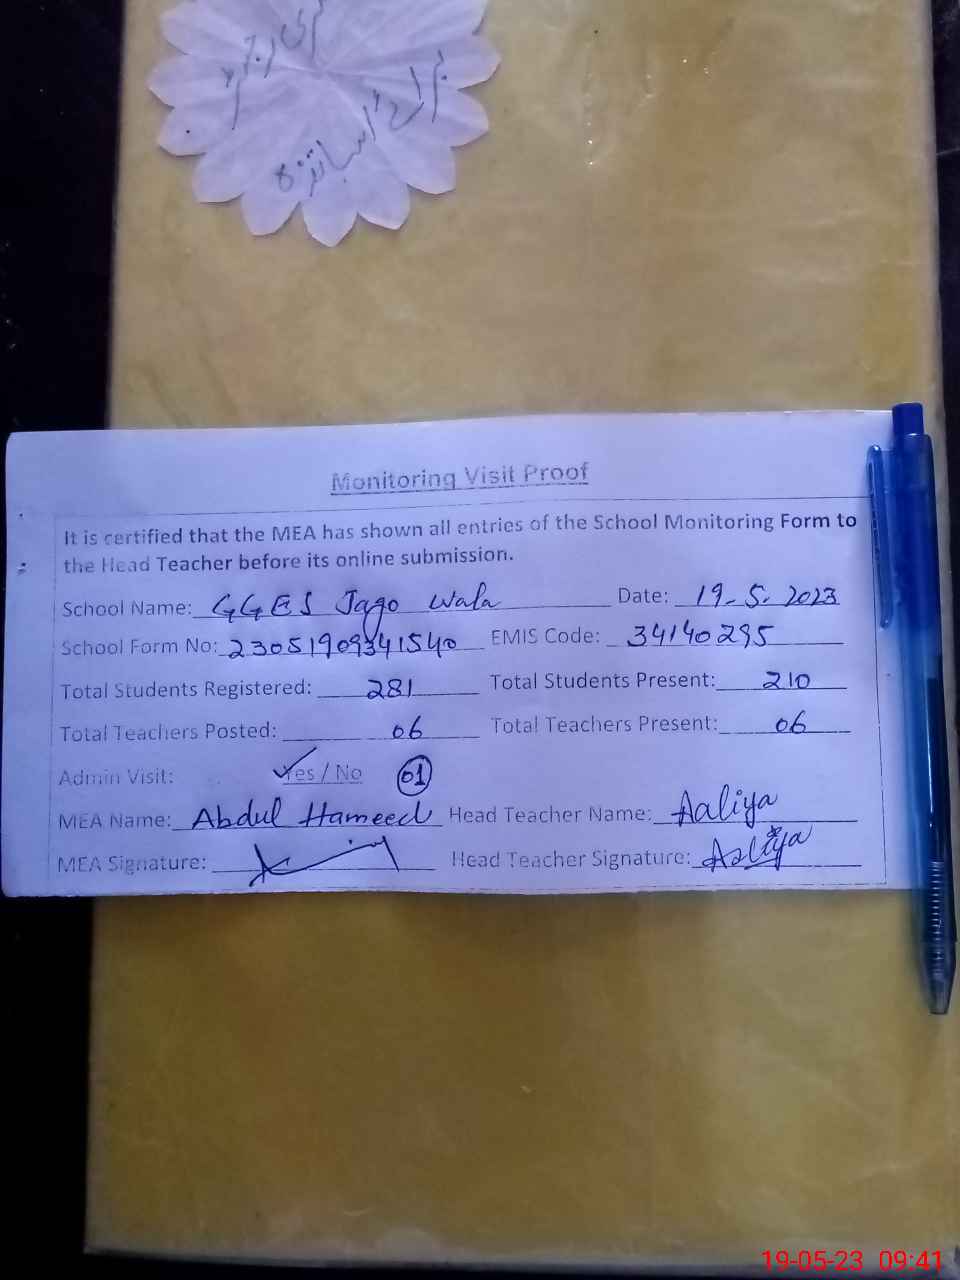 برائے اساتذہ
Monitoring Visit Proof
It is certified that the MEA has shown all entries of the School Monitoring Form to
the Head Teacher before its online submission.
School Name: GGES Jago Wala Date: 19-5-2023
School Form No: 23051909341540 EMIS Code: 34140295
Total Students Registered: 281 Total Students Present: 210
Total Teachers Posted: 06 Total Teachers Present: 06
Admin Visit: Yes / No 01
MEA Name: Abdul Hameed Head Teacher Name: Aaliya
MEA Signature: Head Teacher Signature: Aaliya
19-05-23 09:41